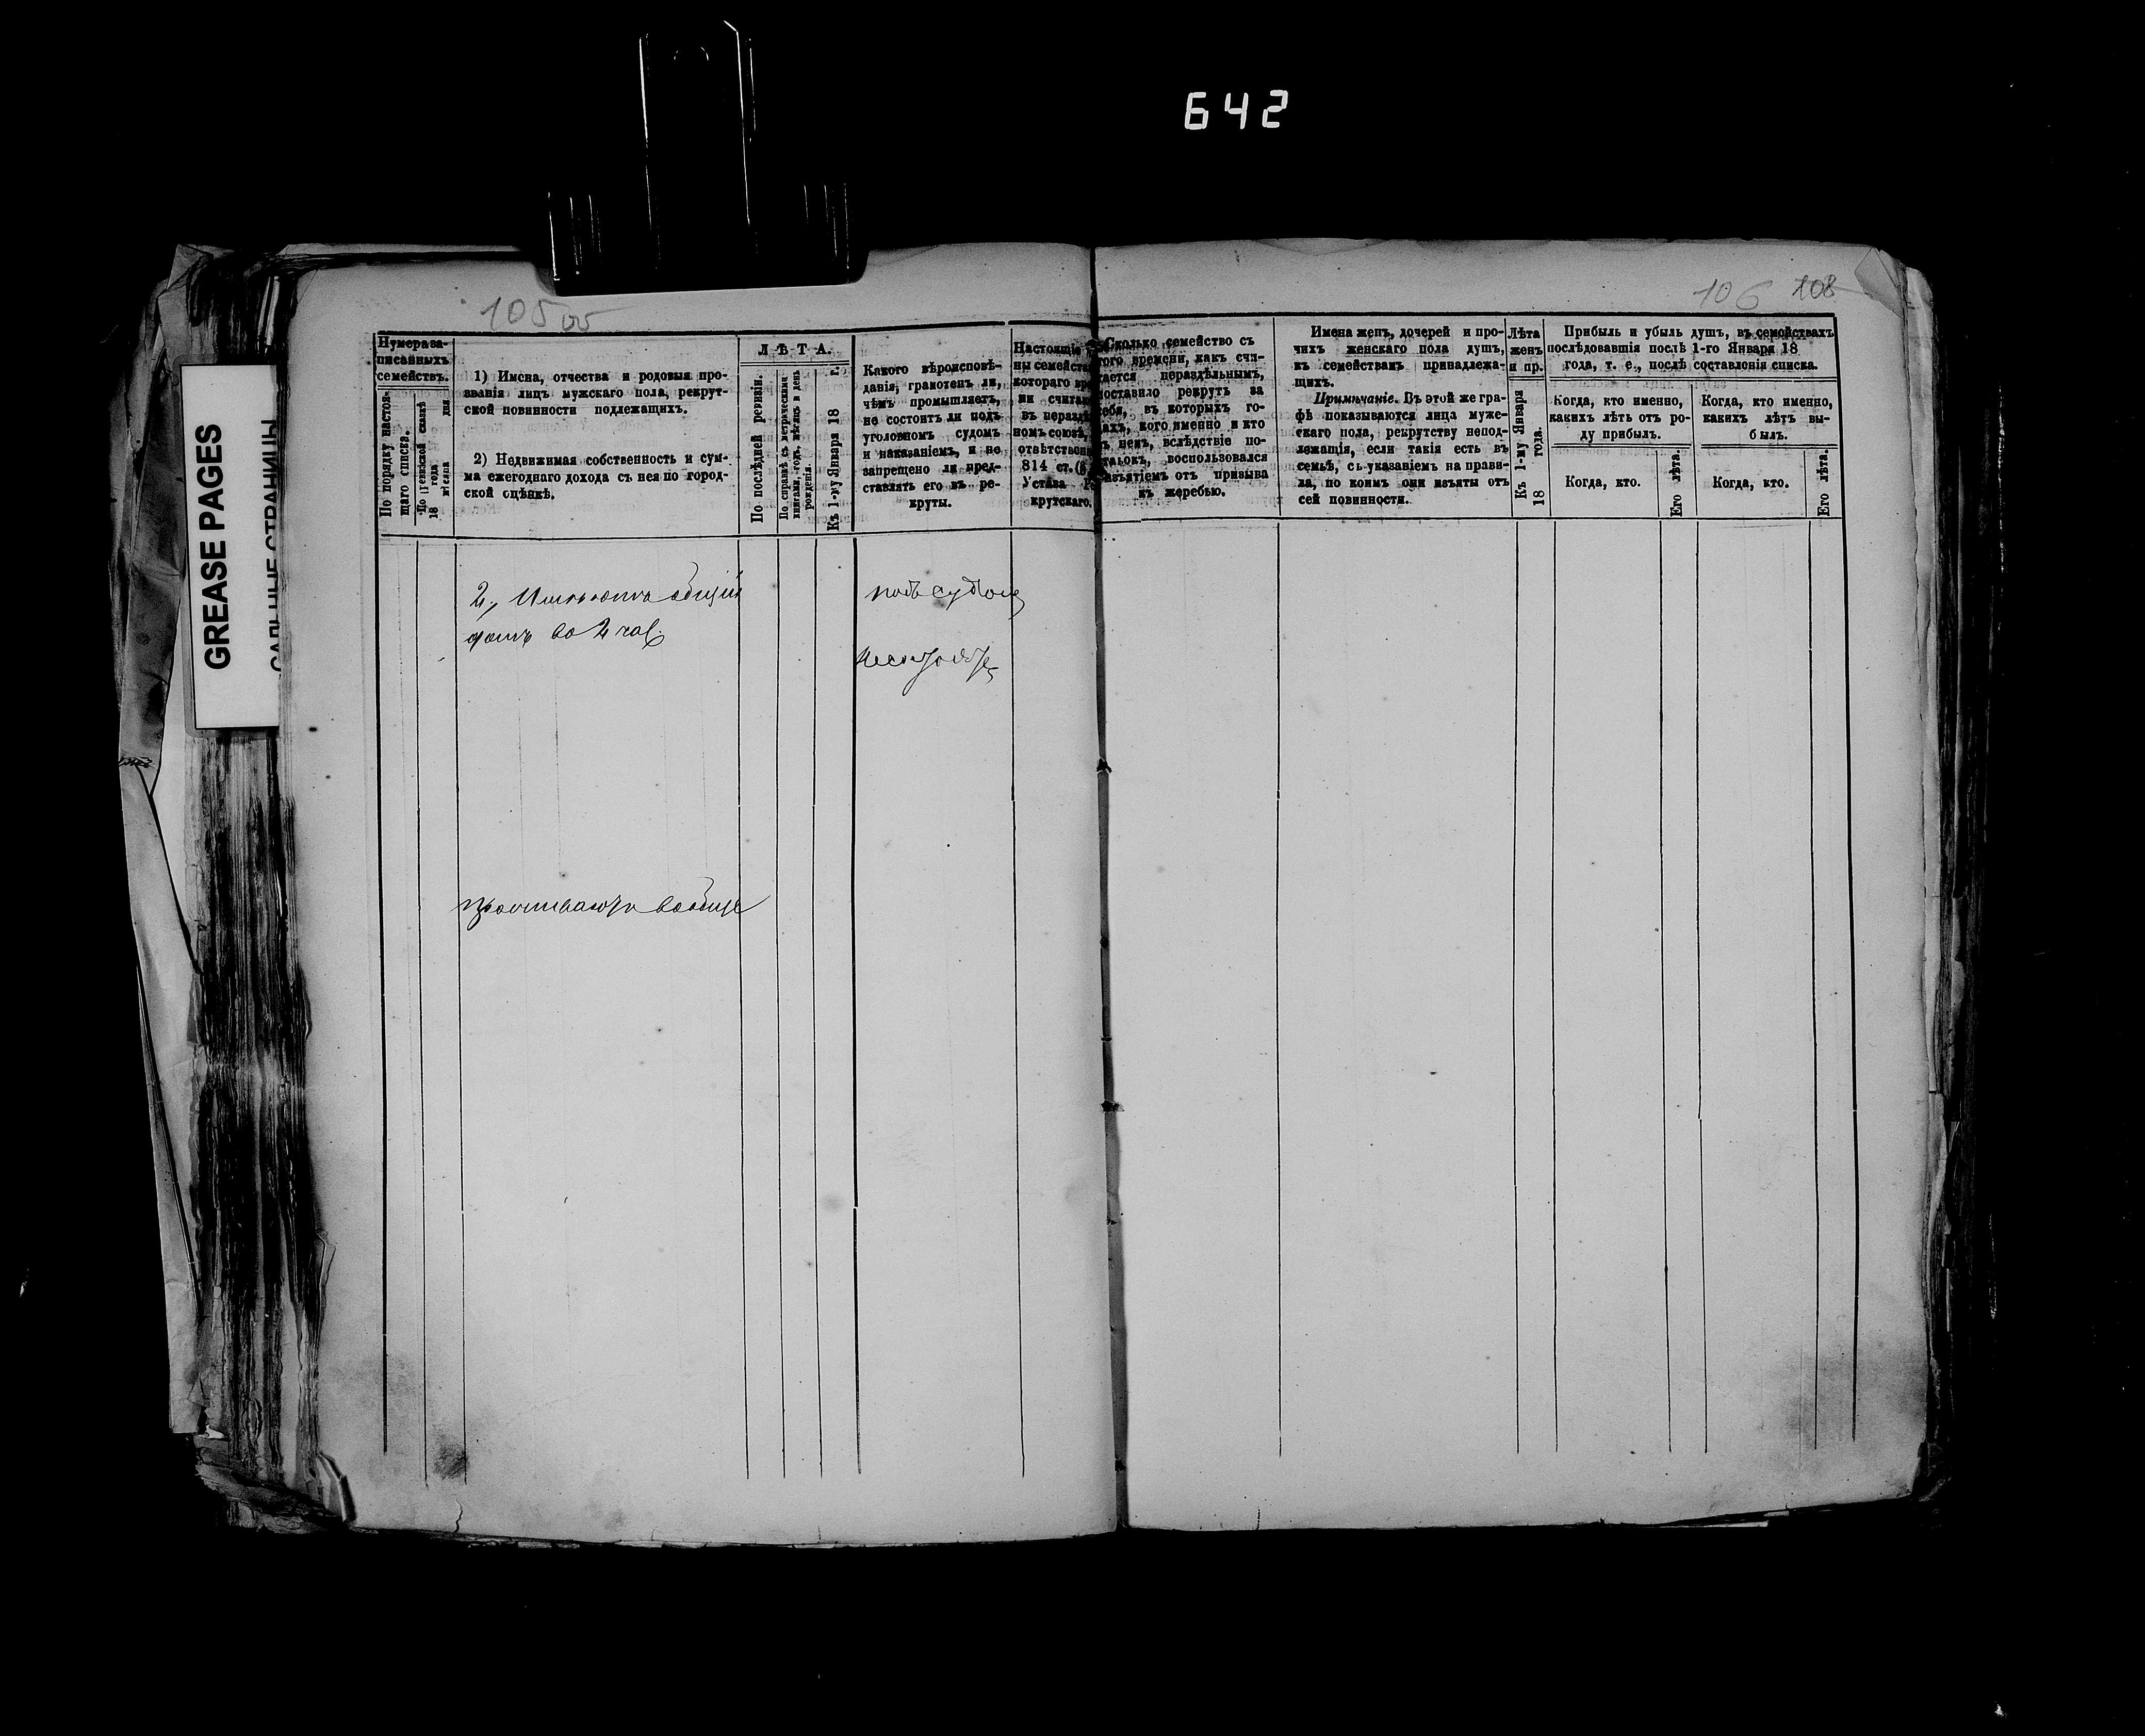 642
105 об
106 108
GREASE PAGES
САЛЬНЫЕ СТРАНИЦЫ
Нумера за-
писанныхъ
семействъ.
По порядку настоя-
щаго списка.
18 года
1) Имена, отчества и родовыя про-
званія лицъ мужскаго пола, рекрут-
ской повинности подлежащихъ.
2) Недвижимая собственность и сум-
ма ежегоднаго дохода съ нея по город-
ской оцѣнкѣ.
ЛѢТА.
По послѣдней ревизіи.
По справкѣ съ метрическими
книгами, годъ, мѣсяцъ и день
рожденія.
Къ 1-му Января 18 г.
Какого вѣроисповѣ-
данія, грамотенъ ли,
чѣмъ промышляетъ,
не состоитъ ли подъ
уголовномъ судомъ
и наказаніемъ, и не
запрещено ли пред-
ставлять его въ ре-
круты.
Настоящіе
ны семейства
котораго вре
ни считае
въ нераздѣ
номъ союзѣ,
отвѣтствен
814 ст.
Устава Ре
крутскаго.
Сколько семейство съ
того времени, какъ счи-
тается нераздѣльнымъ,
поставило рекрутъ за
себя, въ которыхъ го-
дахъ, кого именно и кто
въ немъ, вслѣдствіе по-
воспользовался
изъятіемъ отъ призыва
къ жеребью.
Имена женъ, дочерей и про-
чихъ женскаго пола душъ,
къ семействамъ принадлежа-
щихъ.
Примѣчаніе. Въ этой же гра-
фѣ показываются лица муже-
скаго пола, рекрутству непод-
лежащія, если такія есть въ
семьѣ, съ указаніемъ на прави-
ла, по коимъ они изъяты отъ
сей повинности.
Лѣта
женъ
и пр.
Къ 1-му Января
18 года.
Прибыль и убыль душъ, въ семействахъ
послѣдовавшія послѣ 1-го Января 18
года, т. е., послѣ составленія списка.
Когда, кто именно,
какихъ лѣтъ отъ ро-
ду прибылъ.
Когда, кто именно,
какихъ лѣтъ вы-
былъ.
Когда, кто.
Его лѣта.
Когда, кто.
Его лѣта.
2, Имѣютъ общій
домъ во 2 час.
подъ судомъ
не состоятъ
проживаютъ вообще